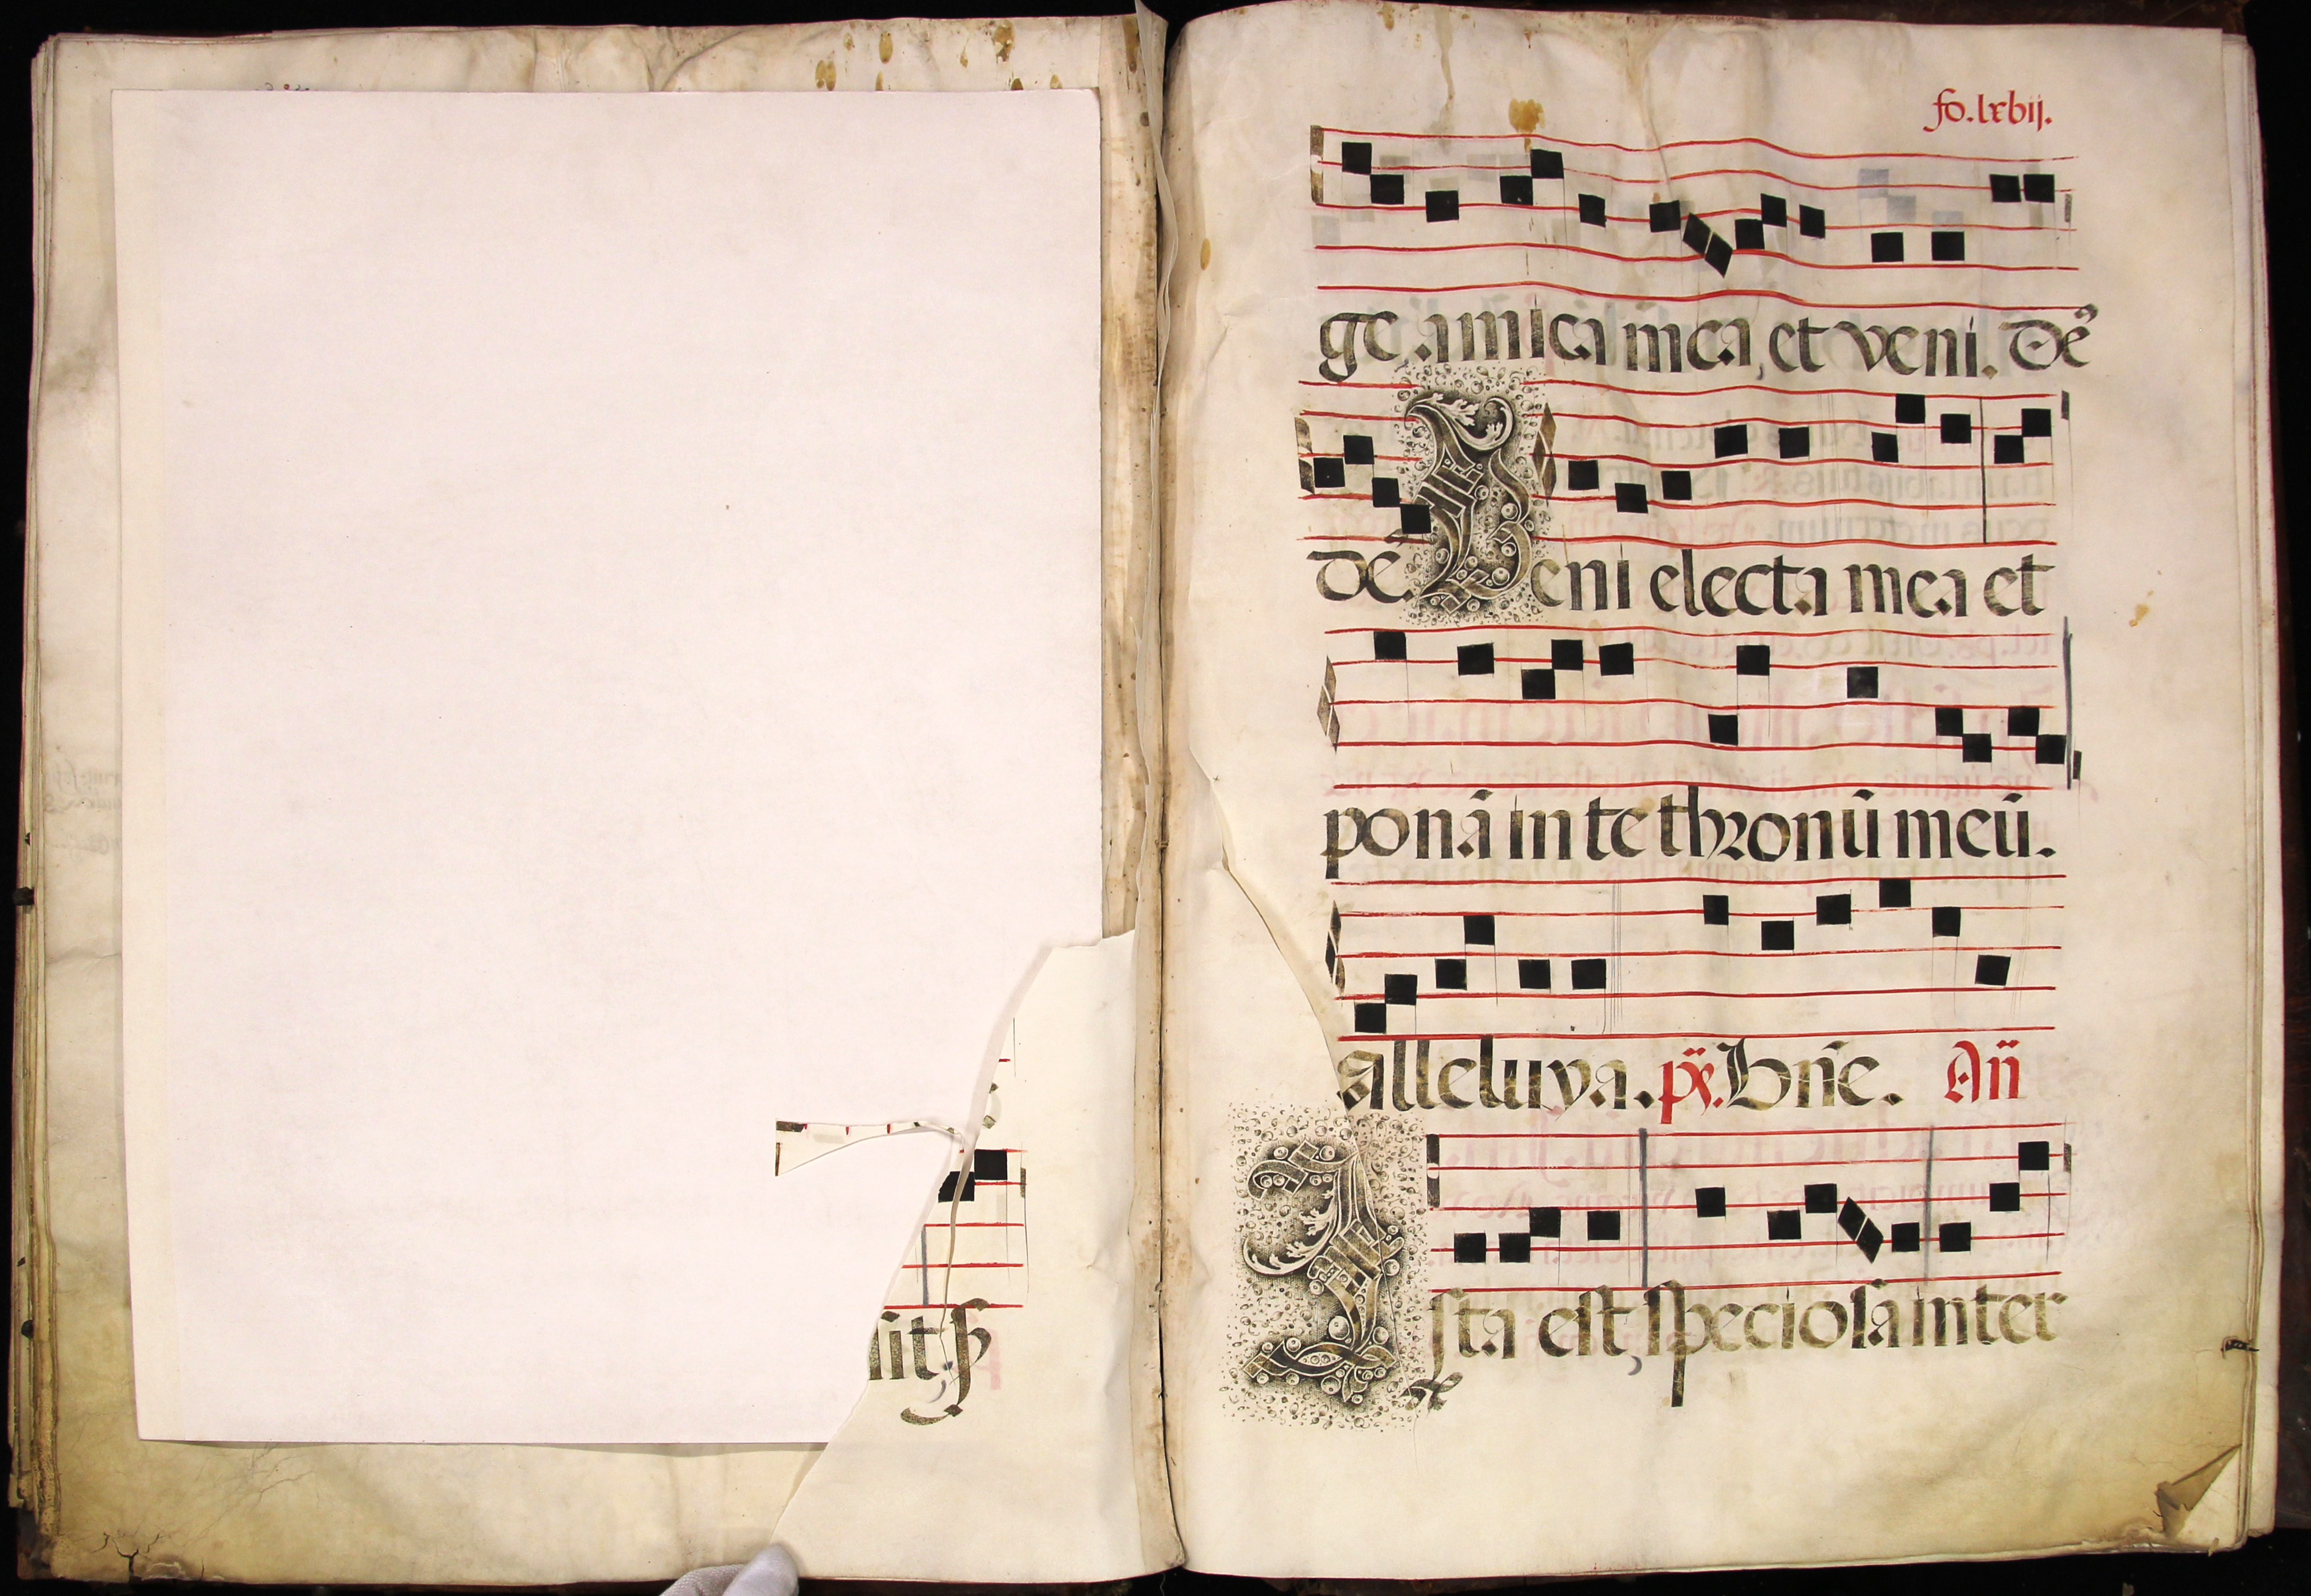 sit, ꝑ
fo. lxvij.
ge, amica mea, et veni. Deꝰ
dē. Veni electa mea et
ponā in te thronū meū.
alleluya. ps̄. Dn̄e. An̄
Ista est, speciosa inter